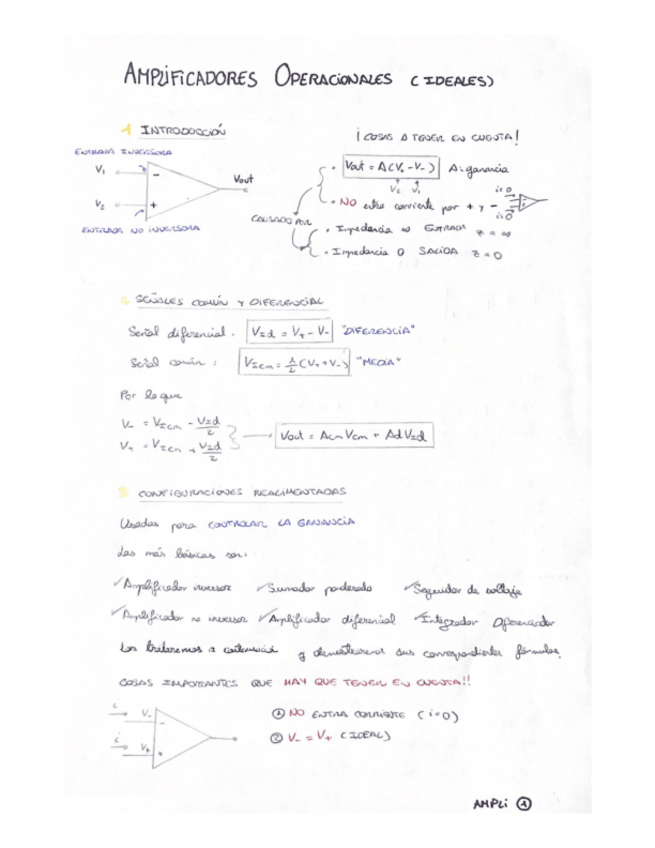 AMPLIFICADORES OPERACIONALES (IDEALES)
1 INTRODUCCIÓN
¡COSAS A TENER EN CUENTA!
ENTRADA INVERSORA
V1
V2
-
+
Vout
ENTRADA NO INVERSORA
CAUSADO POR
· Vout = A(V+ - V-) A: ganancia
V2 V1
· NO entra corriente por + y -
i=0
i=0
· Impedancia ∞ ENTRADA Z = ∞
· Impedancia 0 SALIDA Z = 0
2 SEÑALES COMÚN Y DIFERENCIAL
Señal diferencial: VId = V+ - V- "DIFERENCIA"
Señal común: VIcm = 1/2 (V+ + V-) "MEDIA"
Por lo que
V- = VIcm - VId/2
V+ = VIcm + VId/2
Vout = Acm Vcm + Ad VId
3 CONFIGURACIONES REALIMENTADAS
Usadas para CONTROLAR LA GANANCIA
Las más básicas son:
✓Amplificador inversor ✓Sumador ponderado ✓Seguidor de voltaje
✓Amplificador no inversor ✓Amplificador diferencial ✓Integrador Diferenciador
Los trataremos a continuación y demostraremos sus correspondientes fórmulas.
COSAS IMPORTANTES QUE HAY QUE TENER EN CUENTA!!
i
V-
-
i
V+
+
① NO ENTRA CORRIENTE (i=0)
② V- = V+ (IDEAL)
AMPLI ①